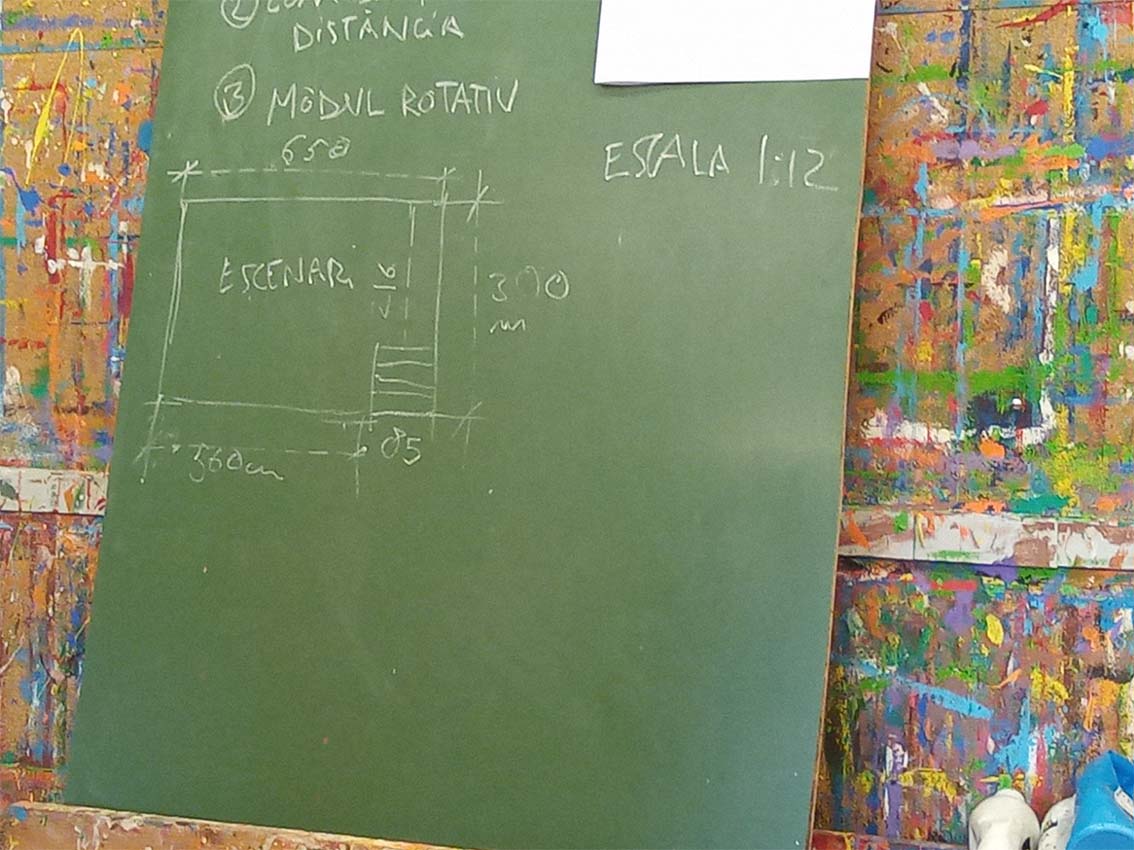 DISTÀNCIA
③ MÒDUL ROTATIU
650
ESCALA 1:12
ESCENARI
300
560cm
85